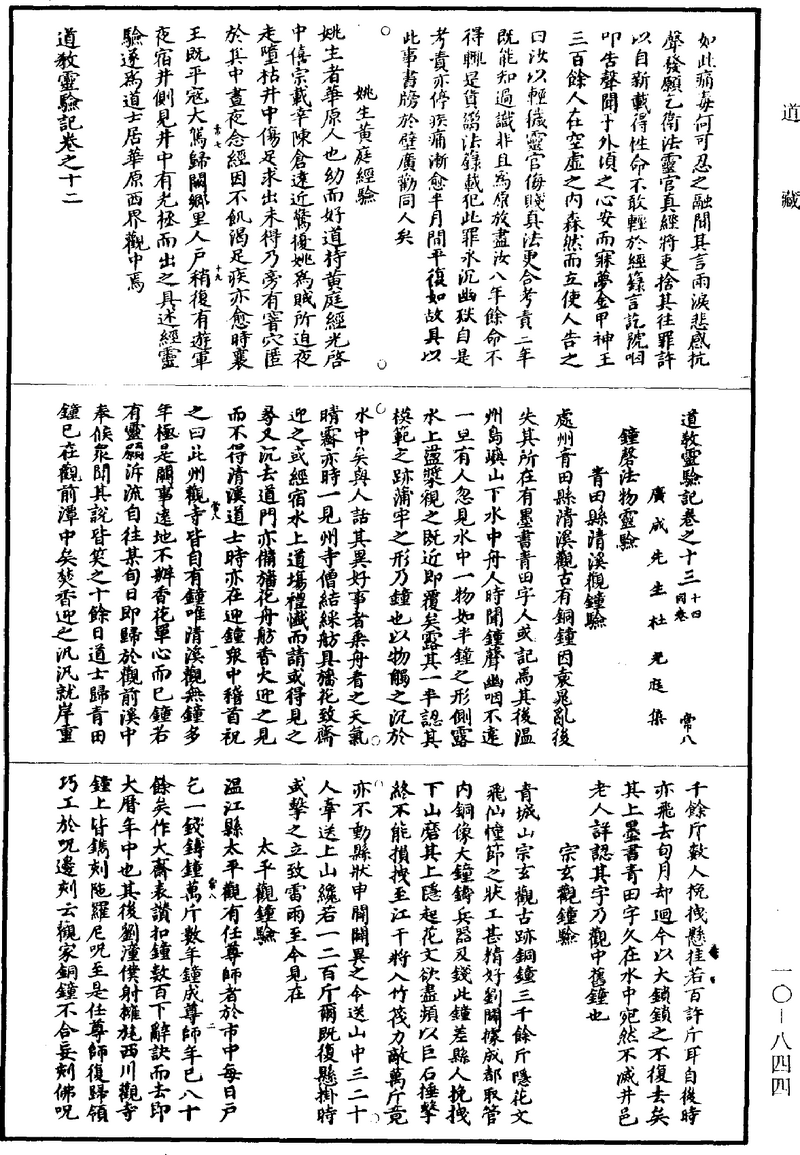 道藏
如此痛毒何可忍之融聞其言雨淚悲感抗
聲發願乞衛法靈官真經將吏捨其往罪許
以自新載得性命不敢輕於經籙言訖號咽
叩舌聲聞于外頃之心安而寐夢金甲神王
三百餘人在空虛之內森然而立使人告之
曰汝以輕穢靈官侮賤真法更合考責二年
既能知過識非且爲原放盡汝八年餘命不
得輒是貨鬻法籙載犯此罪永沉幽獄自是
考責亦停疾痛漸愈半月間平復如故具以
此事書牓於壁廣勸同人矣
姚生黃庭經驗
姚生者華原人也幼而好道持黃庭經光啓
中僖宗載幸陳倉遠近驚擾姚爲賊所迫夜
走墮枯井中傷足求出未得乃旁有窨穴匿
於其中晝夜念經因不飢渴足疾亦愈時襄
王既平寇大駕歸闕鄉里人戶稍復有遊軍
夜宿井側見井中有光極而出之具述經靈
驗遂爲道士居華原西界觀中焉
道教靈驗記卷之十二
常七
十九
道教靈驗記卷之十三 十四同卷 常八
廣成先生杜光庭集
鐘磬法物靈驗
青田縣清溪觀鐘驗
處州青田縣清溪觀古有銅鐘因袁晁亂後
失其所在有墨書青田字人或記焉其後溫
州島嶼山下水中舟人時聞鐘聲幽咽不遠
一旦有人忽見水中一物如半鐘之形側露
水上盪槳觀之既近即覆矣露其一半認其
模範之跡蒲牢之形乃鐘也以物觸之沉於
水中矣與人話其異好事者乘舟者之天氣
晴霽亦時一見州寺僧結綵舫具旛花致齋
迎之或經宿水上道場禮懺而請或得見之
尋又沉去道門亦備旛花舟舫香火迎之見
而不得清溪道士時亦在迎鐘衆中稽首祝
之曰此州觀寺皆自有鐘唯清溪觀無鐘多
年極是闕事遠地不辦香花單心而已鐘若
有靈願泝流自往某旬日即歸於觀前溪中
奉候衆聞其說皆笑之十餘日道士歸青田
鐘已在觀前潭中矣焚香迎之汎汎就岸重
常八
一
千餘斤數人挽拽懸挂若百許斤耳自後時
亦飛去旬月却迴今以大鎖鎖之不復去矣
其上墨書青田字久在水中宛然不滅井邑
老人詳認其字乃觀中舊鐘也
宗玄觀鐘驗
青城山宗玄觀古跡銅鐘三千餘斤隱花文
飛仙幢節之狀工甚精好劉闢據成都取管
內銅像大鐘鑄兵器及錢此鐘差縣人挽拽
下山磨其上隱起花文欲盡頻以巨石捶擊
終不能損拽至江干將入竹筏力敵萬斤竟
亦不動縣狀申聞闢異之令送山中三二十
人牽送上山纔若一二百斤爾既復懸掛時
或擊之立致雷雨至今見在
太平觀鐘驗
溫江縣太平觀有任尊師者於市中每日戶
乞一錢鑄鐘萬斤數年鐘成尊師年已八十
餘矣作大齋表讚扣鐘數百下辭訣而去即
大曆年中也其後劉潼僕射擁旄西川觀寺
鐘上皆鐫刻陁羅尼呪至是任尊師復歸領
巧工於呪邊刻云觀家銅鐘不合妄刻佛呪
常八
二
一〇—八四四